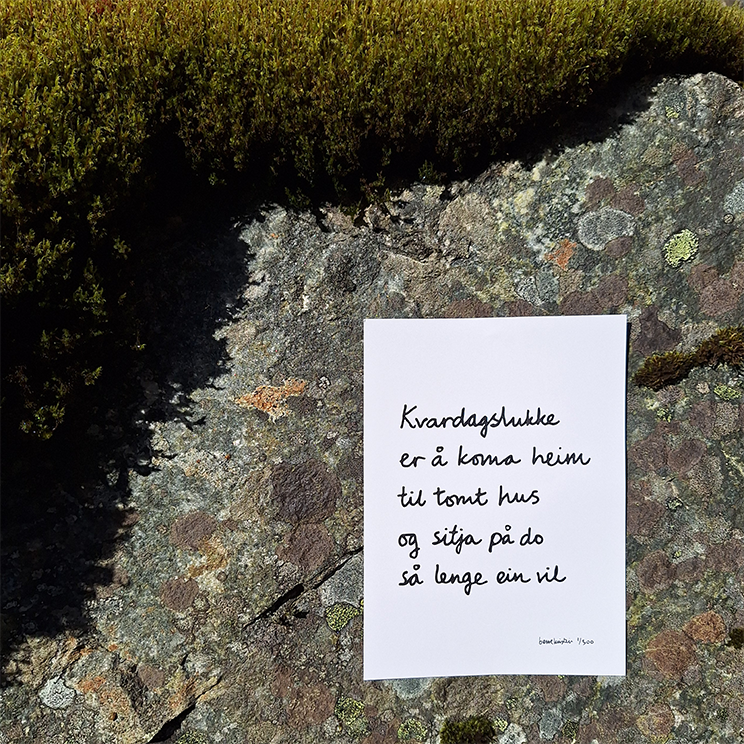 Kvardagslukke
er å koma heim
til tomt hus
og sitja på do
så lenge ein vil
1/300